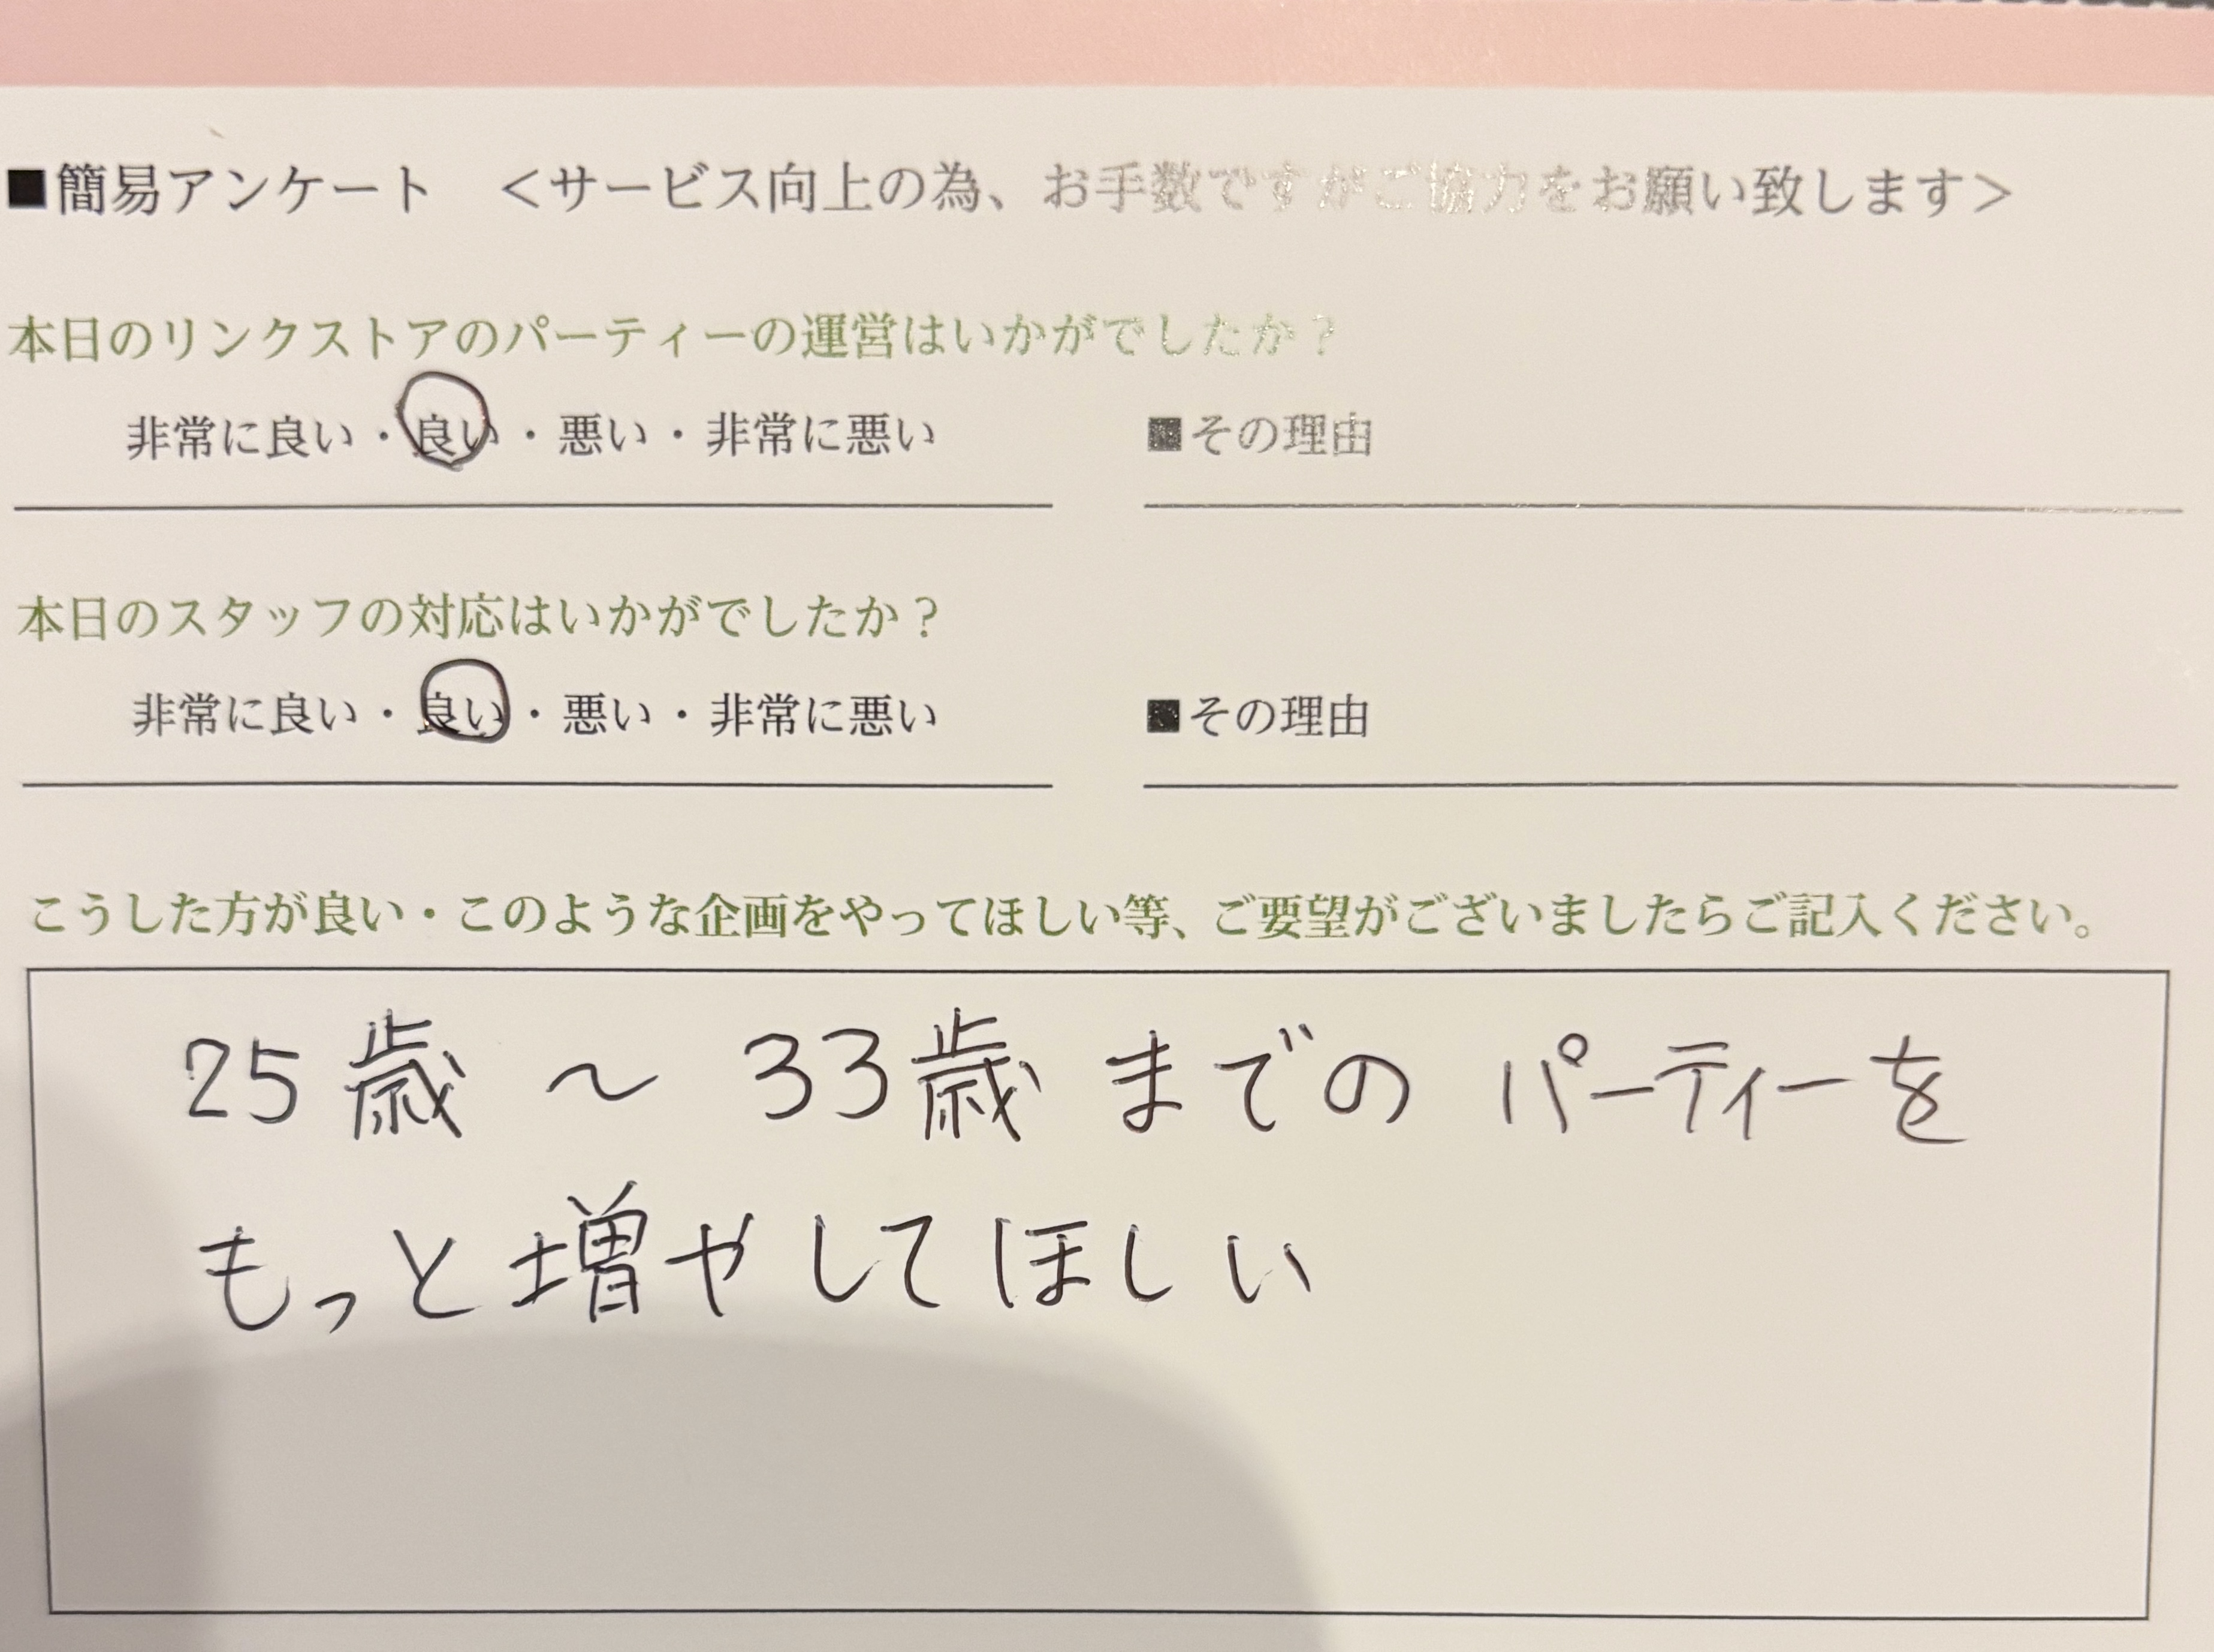 ■簡易アンケート ＜サービス向上の為、お手数ですがご協力をお願い致します＞
本日のリンクストアのパーティーの運営はいかがでしたか？
非常に良い・良い・悪い・非常に悪い ■その理由
本日のスタッフの対応はいかがでしたか？
非常に良い・良い・悪い・非常に悪い ■その理由
こうした方が良い・このような企画をやってほしい等、ご要望がございましたらご記入ください。
25歳〜33歳までのパーティーを
もっと増やしてほしい